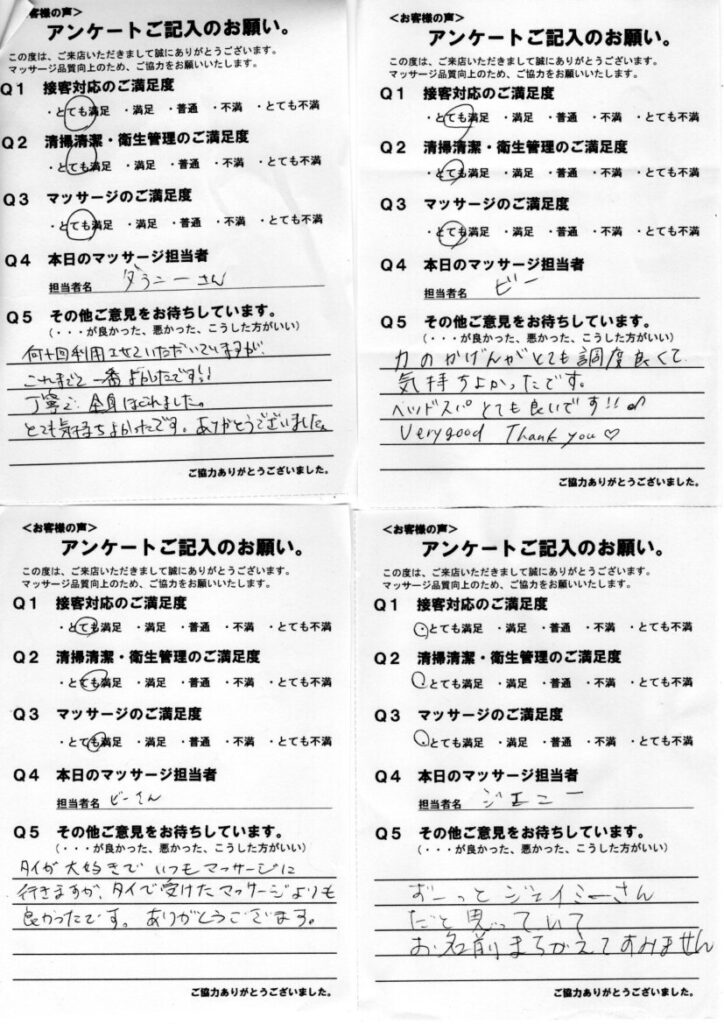 お客様の声＞
アンケートご記入のお願い。
この度は、ご来店いただきまして誠にありがとうございます。
マッサージ品質向上のため、ご協力をお願いいたします。
Q1 接客対応のご満足度
・とても満足 ・満足 ・普通 ・不満 ・とても不満
Q2 清掃清潔・衛生管理のご満足度
・とても満足 ・満足 ・普通 ・不満 ・とても不満
Q3 マッサージのご満足度
・とても満足 ・満足 ・普通 ・不満 ・とても不満
Q4 本日のマッサージ担当者
担当者名 ダラニーさん
Q5 その他ご意見をお待ちしています。
（・・・が良かった、悪かった、こうした方がいい）
何十回利用させていただいていますが、
これまでで一番よかったです!!
丁寧で、全身ほぐれました。
とても気持ちよかったです。ありがとうございました。
ご協力ありがとうございました。
＜お客様の声＞
アンケートご記入のお願い。
この度は、ご来店いただきまして誠にありがとうございます。
マッサージ品質向上のため、ご協力をお願いいたします。
Q1 接客対応のご満足度
・とても満足 ・満足 ・普通 ・不満 ・とても不満
Q2 清掃清潔・衛生管理のご満足度
・とても満足 ・満足 ・普通 ・不満 ・とても不満
Q3 マッサージのご満足度
・とても満足 ・満足 ・普通 ・不満 ・とても不満
Q4 本日のマッサージ担当者
担当者名 ビー
Q5 その他ご意見をお待ちしています。
（・・・が良かった、悪かった、こうした方がいい）
力のかげんがとても調度良くて
気持ちよかったです。
ベッドスパとても良いです!!♪
Very good Thank you♡
ご協力ありがとうございました。
＜お客様の声＞
アンケートご記入のお願い。
この度は、ご来店いただきまして誠にありがとうございます。
マッサージ品質向上のため、ご協力をお願いいたします。
Q1 接客対応のご満足度
・とても満足 ・満足 ・普通 ・不満 ・とても不満
Q2 清掃清潔・衛生管理のご満足度
・とても満足 ・満足 ・普通 ・不満 ・とても不満
Q3 マッサージのご満足度
・とても満足 ・満足 ・普通 ・不満 ・とても不満
Q4 本日のマッサージ担当者
担当者名 ビーさん
Q5 その他ご意見をお待ちしています。
（・・・が良かった、悪かった、こうした方がいい）
タイが大好きでいつもマッサージに
行きますが、タイで受けたマッサージよりも
良かったです。ありがとうございます。
ご協力ありがとうございました。
＜お客様の声＞
アンケートご記入のお願い。
この度は、ご来店いただきまして誠にありがとうございます。
マッサージ品質向上のため、ご協力をお願いいたします。
Q1 接客対応のご満足度
・とても満足 ・満足 ・普通 ・不満 ・とても不満
Q2 清掃清潔・衛生管理のご満足度
・とても満足 ・満足 ・普通 ・不満 ・とても不満
Q3 マッサージのご満足度
・とても満足 ・満足 ・普通 ・不満 ・とても不満
Q4 本日のマッサージ担当者
担当者名 ジェニー
Q5 その他ご意見をお待ちしています。
（・・・が良かった、悪かった、こうした方がいい）
ずーっとジェイミーさん
だと思っていて
お名前まちがえてすみません
ご協力ありがとうございました。